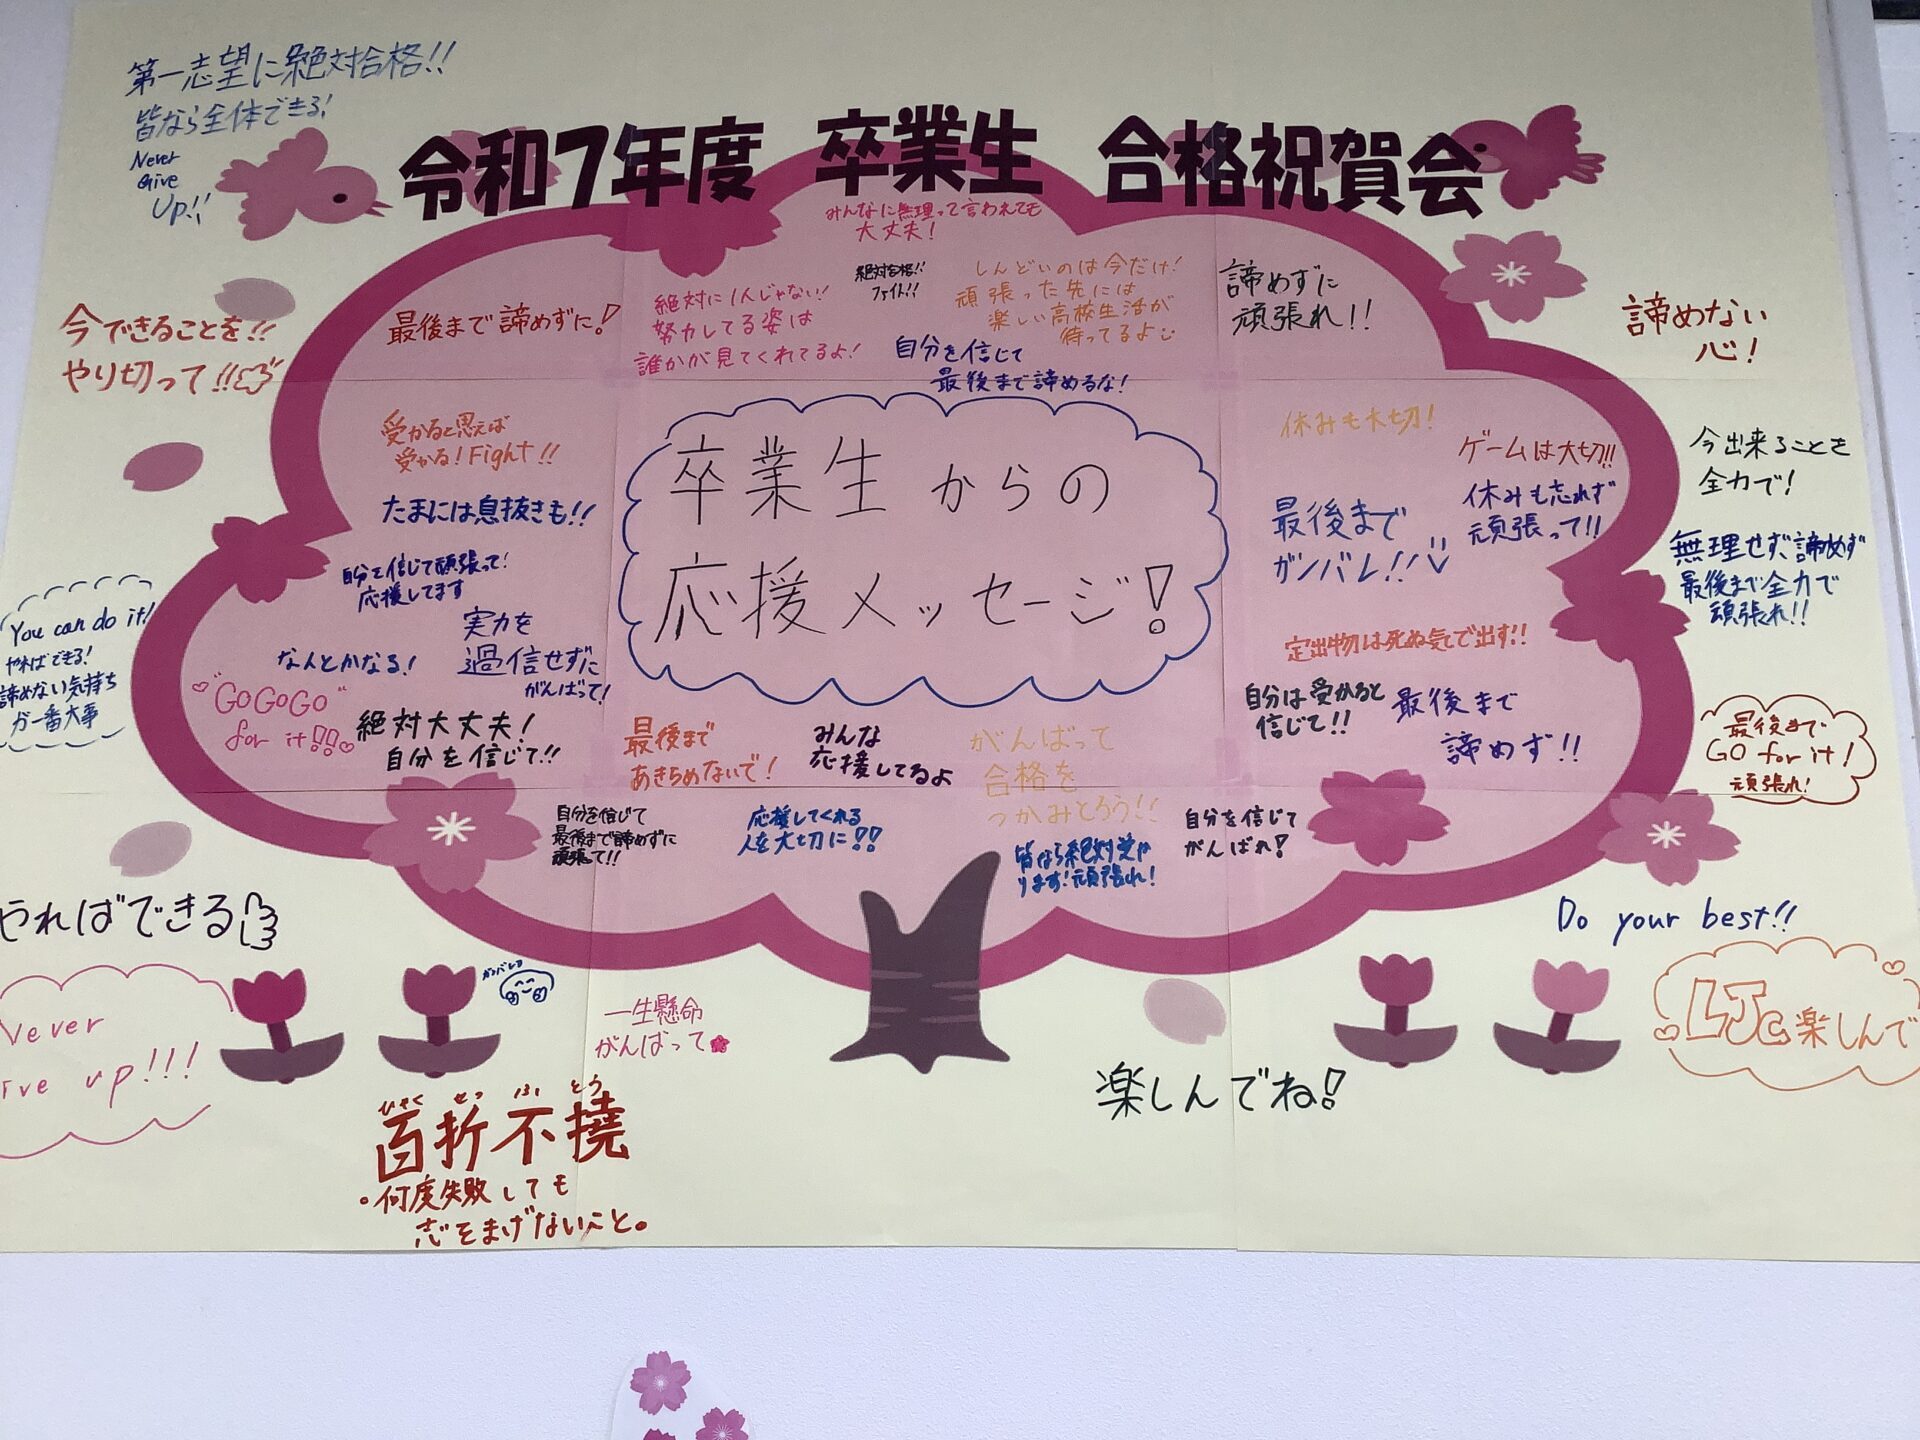 第一志望に絶対合格!!
皆なら全体できる!
Never
Give
Up!!
令和7年度 卒業生 合格祝賀会
みんなに無理って言われても
大丈夫!
今できることを!!
やり切って!!
最後まで諦めずに!
絶対に1人じゃない!
努力してる姿は
誰かが見てくれてるよ!
絶対合格!!
ファイト!!
しんどいのは今だけ!
頑張った先には
楽しい高校生活が
待ってるよ
自分を信じて
最後まで諦めるな!
諦めずに
頑張れ!!
諦めない
心!
受かると思えば
受かる!Fight!!
たまには息抜きも!!
自分を信じて頑張って!
応援してます
実力を
過信せずに
がんばって!
なんとかなる!
"GOGOGO"
for it!!
絶対大丈夫!
自分を信じて!!
卒業生からの
応援メッセージ!
休みも大切!
ゲームは大切!!
最後まで
ガンバレ!!
休みも忘れず
頑張って!!
今出来ることを
全力で!
無理せず、諦めず
最後まで全力で
頑張れ!!
定出物は死ぬ気で出す!!
自分は受かると
信じて!!
最後まで
諦めず!!
最後まで
GO for it!
頑張れ!
You can do it!
やればできる!
諦めない気持ち
が一番大事
最後まで
あきらめないで!
みんな
応援してるよ
がんばって
合格を
つかみとろう!!
自分を信じて
最後まで諦めずに
頑張って!!
応援してくれる
人を大切に!!
皆なら絶対受か
ります!頑張れ!
自分を信じて
がんばれ!
やればできる
Never
ive up!!!
ガンバレヨ
一生懸命
がんばって
ひゃく せつ ふ とう
百折不撓
。何度失敗しても
志をまげないこと。
楽しんでね!
Do your best!!
LJC楽しんで